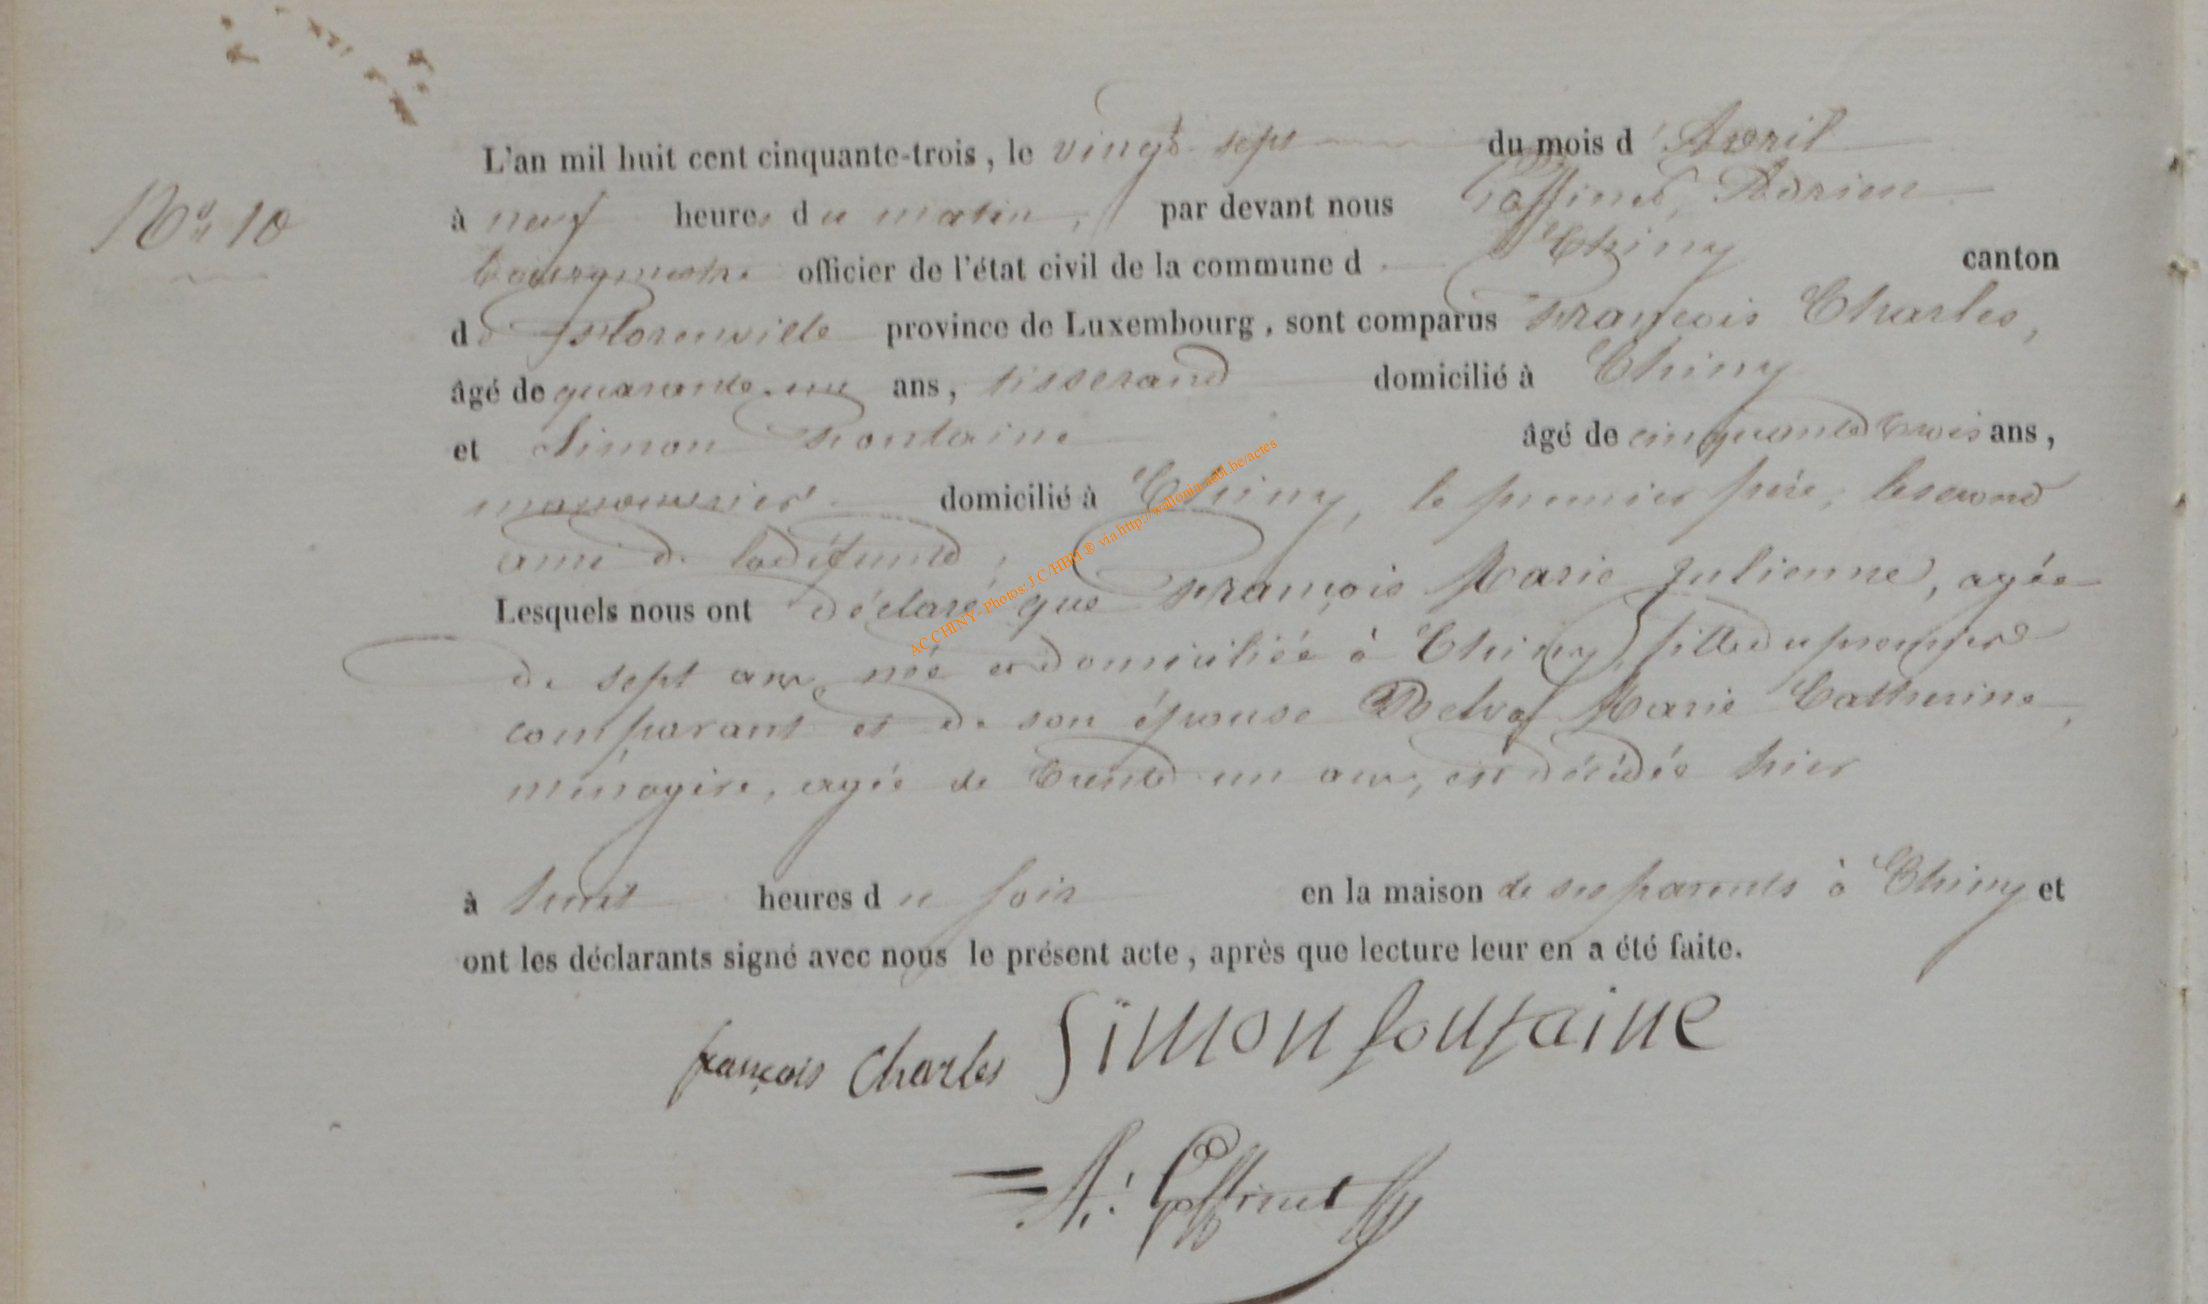 L'an mil huit cent cinquante-trois, le vingt sept du mois d'Avril
No 10
à neuf heures du matin, par devant nous Goffinet, Adrien
bourgmestre officier de l'état civil de la commune d Chiny canton
de Florenville province de Luxembourg, sont comparus François Charles,
âgé de quarante-un ans, tisserand domicilié à Chiny
et Simon Fontaine âgé de cinquante trois ans,
manouvrier domicilié à Chiny, le premier père, le second
ami de la défunte,
Lesquels nous ont déclaré que François Marie Julienne, agée
de sept ans, née et domiciliée à Chiny, fille du premier
comparant et de son épouse Marie Catherine,
ménagère, agée de trente un ans, est décédée hier
à huit heures du soir en la maison de ses parents à Chiny et
ont les déclarants signé avec nous le présent acte, après que lecture leur en a été faite.
françois Charles Simon fontaine
A. Goffinet
AC CHINY - Photos: J.C. HBM ® via http://wallonia-asbl.be/actes